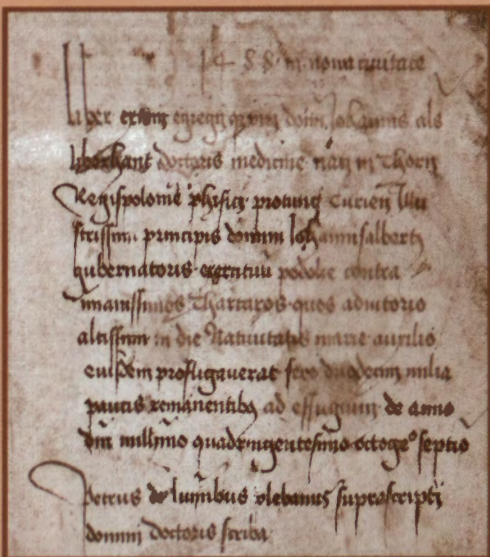 1488 in nova civitate
Liber existens egregii viri domini Johannis als
liborhant doctoris medicine nati in Thorn
Regis polonie phisici protunc Curien Illu
strissimi principis domini Johannis alberti
gubernatoris exercituu podolie contra
imanissimos Thartaros quos adiutorio
altissimi in die Natiuitatis marie auxilio
eiusdem profligauerat fere duodecim milia
paucis remanentibus ad effugium de anno
dni millimo quadringentesimo octogeo septio
Petrus de luminibus plebanus suprascripti
domini doctoris scriba